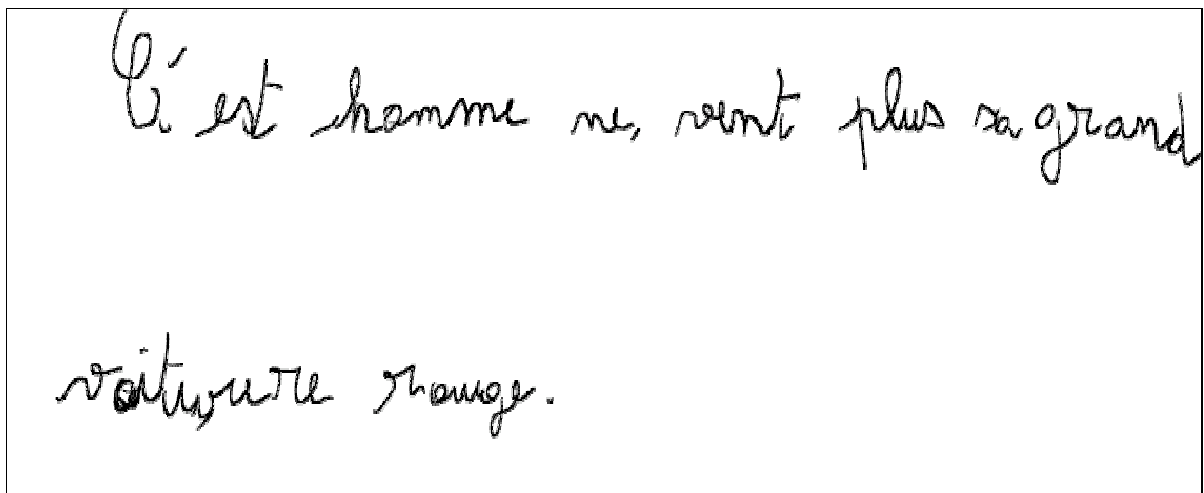 C'est homme ne, vent plus sa grand
voiturure rouge.